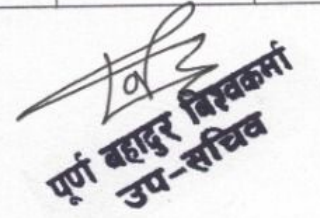 पूर्ण बहादुर विश्वकर्मा
उप-सचिव